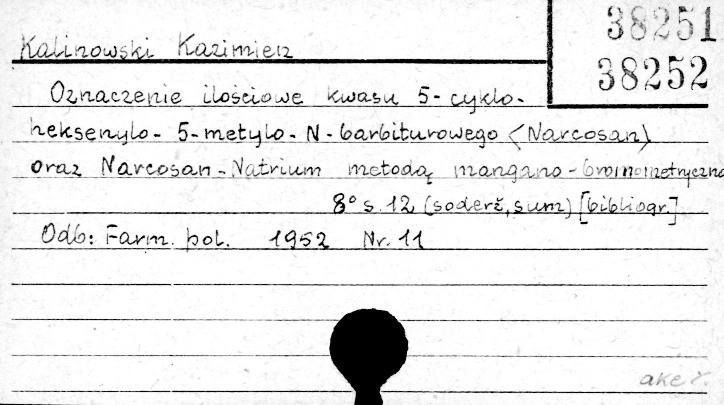 38251
Kalinowski Kazimierz
38252
Oznaczenie ilościowe kwasu 5-cyklo-
heksenylo-5-metylo-N-barbiturowego (Narcosan)
oraz Narcosan-Natrium metodą mangano-bromometryczną
8° s.12 (soderž, sum) [bibliogr.]
Odb: Farm. pol. 1952 Nr. 11